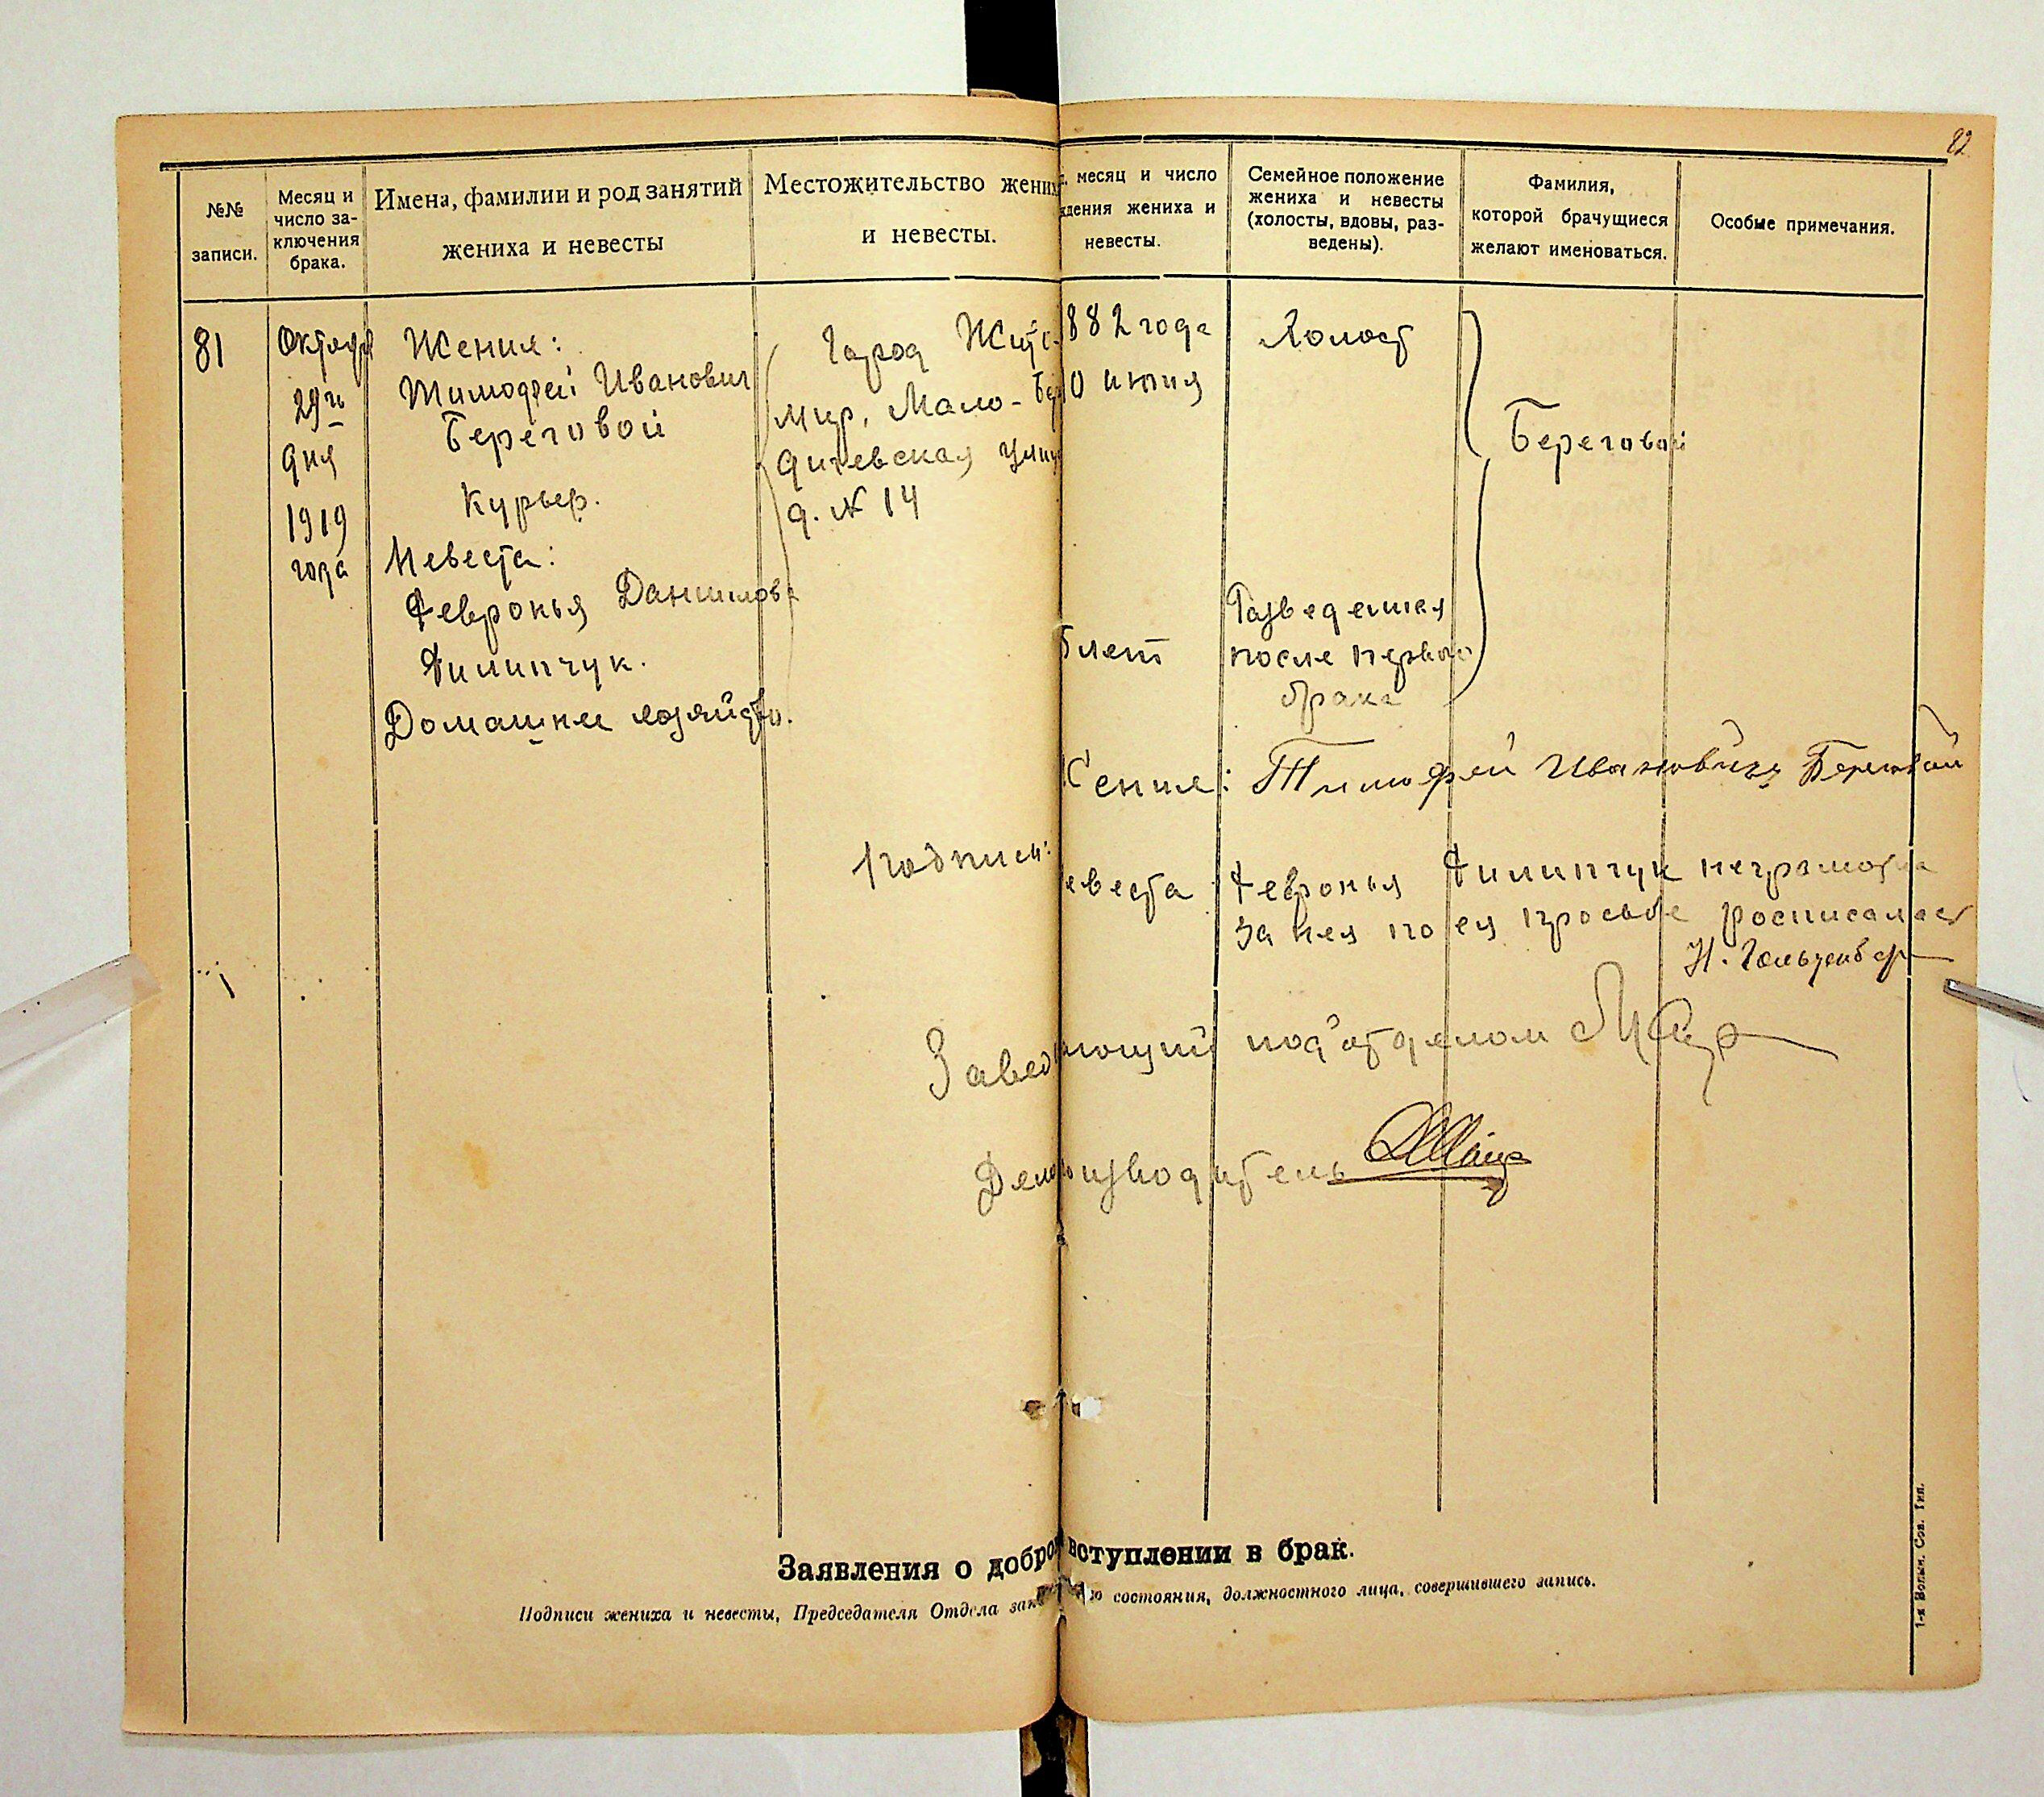 82
№№ записи.
Месяц и число заключения брака.
Имена, фамилии и род занятий жениха и невесты
Местожительство жених
и невесты.
месяц и число
ждения жениха и
невесты.
Семейное положение
жениха и невесты
(холосты, вдовы, раз-
ведены).
Фамилия,
которой брачущиеся
желают именоваться.
Особые примечания.
81
Октября
29го
дня
1919
года
Жених:
Тимофей Иванович
Береговой
Курьер.
Невеста:
Февронья Данилова
Филипчук.
Домашнее хозяйство.
Город Жито-
мир, Мало-Бер
дичевская улиц
д. № 14
882 года
0 июня
лет
Холост
Разведенная
после первого
брака
Береговой
Подписи:
Жених: Тимофей Ивановичъ Береговой
евеста Февронья Филипчук неграмотна
за нея по ея просьбе росписался
Н. Гольденберг
Заведующий под'отделом
Делопроизводитель
Заявления о добро вступлении в брак.
Подписи жениха и невесты, Председателя Отдела зап го состояния, должностного лица, совершившего запись.
1-я Волын. Сов. Тип.